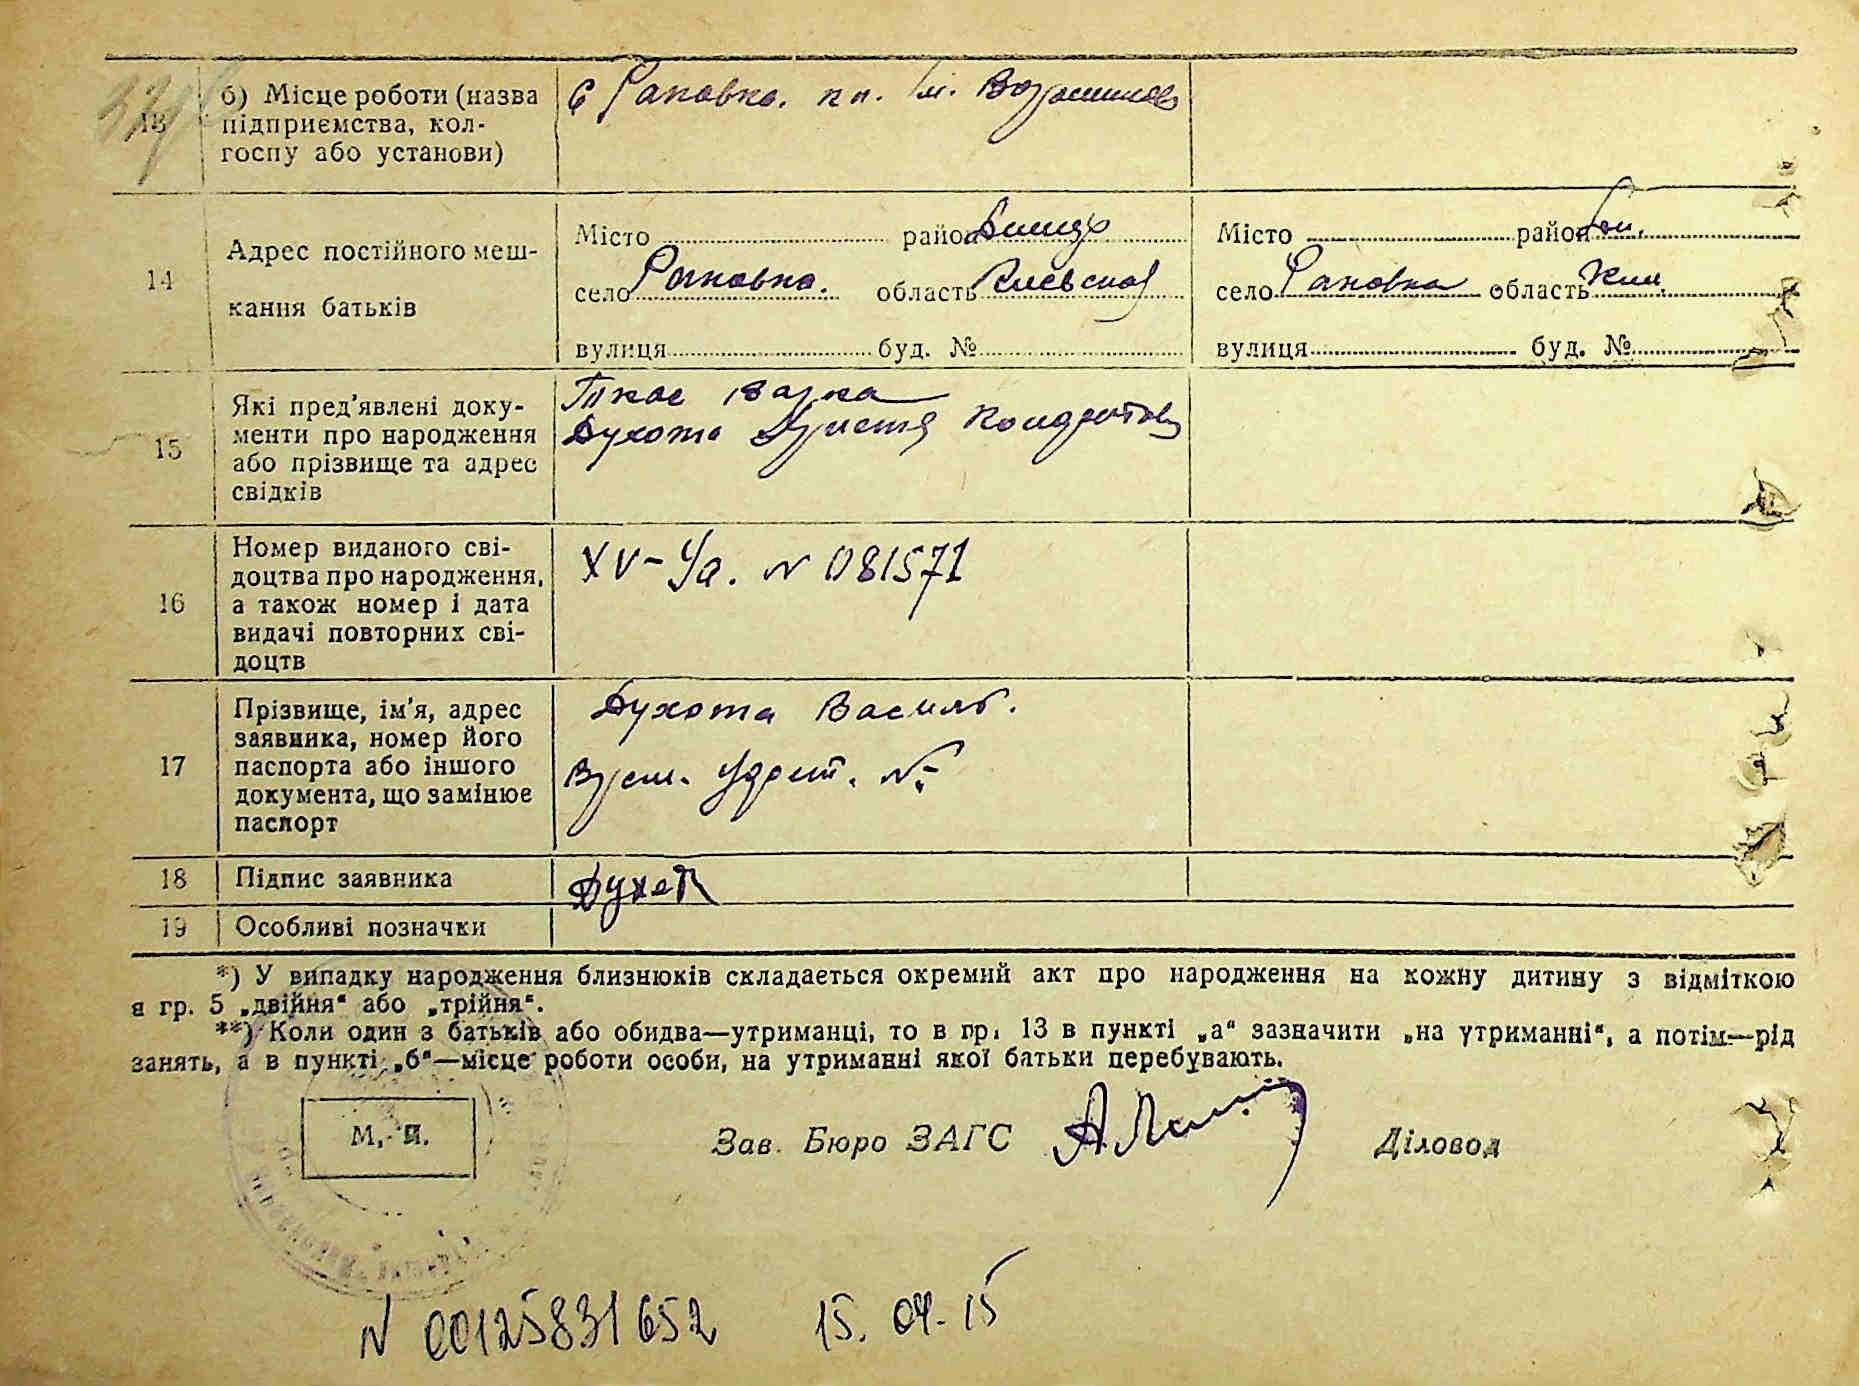 13
б) Місце роботи (назва
підприємства, кол-
госпу або установи)
с Раковка. кп. Ім. Ворошилова
14
Адрес постійного меш-
кання батьків
Місто район
село Раковка. область Киевская
вулиця буд. №
Місто район
село Раковка область Кии.
вулиця буд. №
15
Які пред'явлені доку-
менти про народження
або прізвище та адрес
свідків
Духота
16
Номер виданого сві-
доцтва про народження,
а також номер і дата
видачі повторних сві-
доцтв
XV-Уа. N 081571
17
Прізвище, ім'я, адрес
заявника, номер його
паспорта або іншого
документа, що замінює
паспорт
Духота Василь.
Врем. Удост. №-
18
Підпис заявника
19
Особливі позначки
*) У випадку народження близнюків складається окремий акт про народження на кожну дитину з відміткою
в гр. 5 „двійня“ або „трійня“.
**) Коли один з батьків або обидва—утриманці, то в гр. 13 в пункті „а“ зазначити „на утриманні“, а потім—рід
занять, а в пункті „б“—місце роботи особи, на утриманні якої батьки перебувають.
М. П.
Зав. Бюро ЗАГС
Діловод
N 00125831652 15.04.15